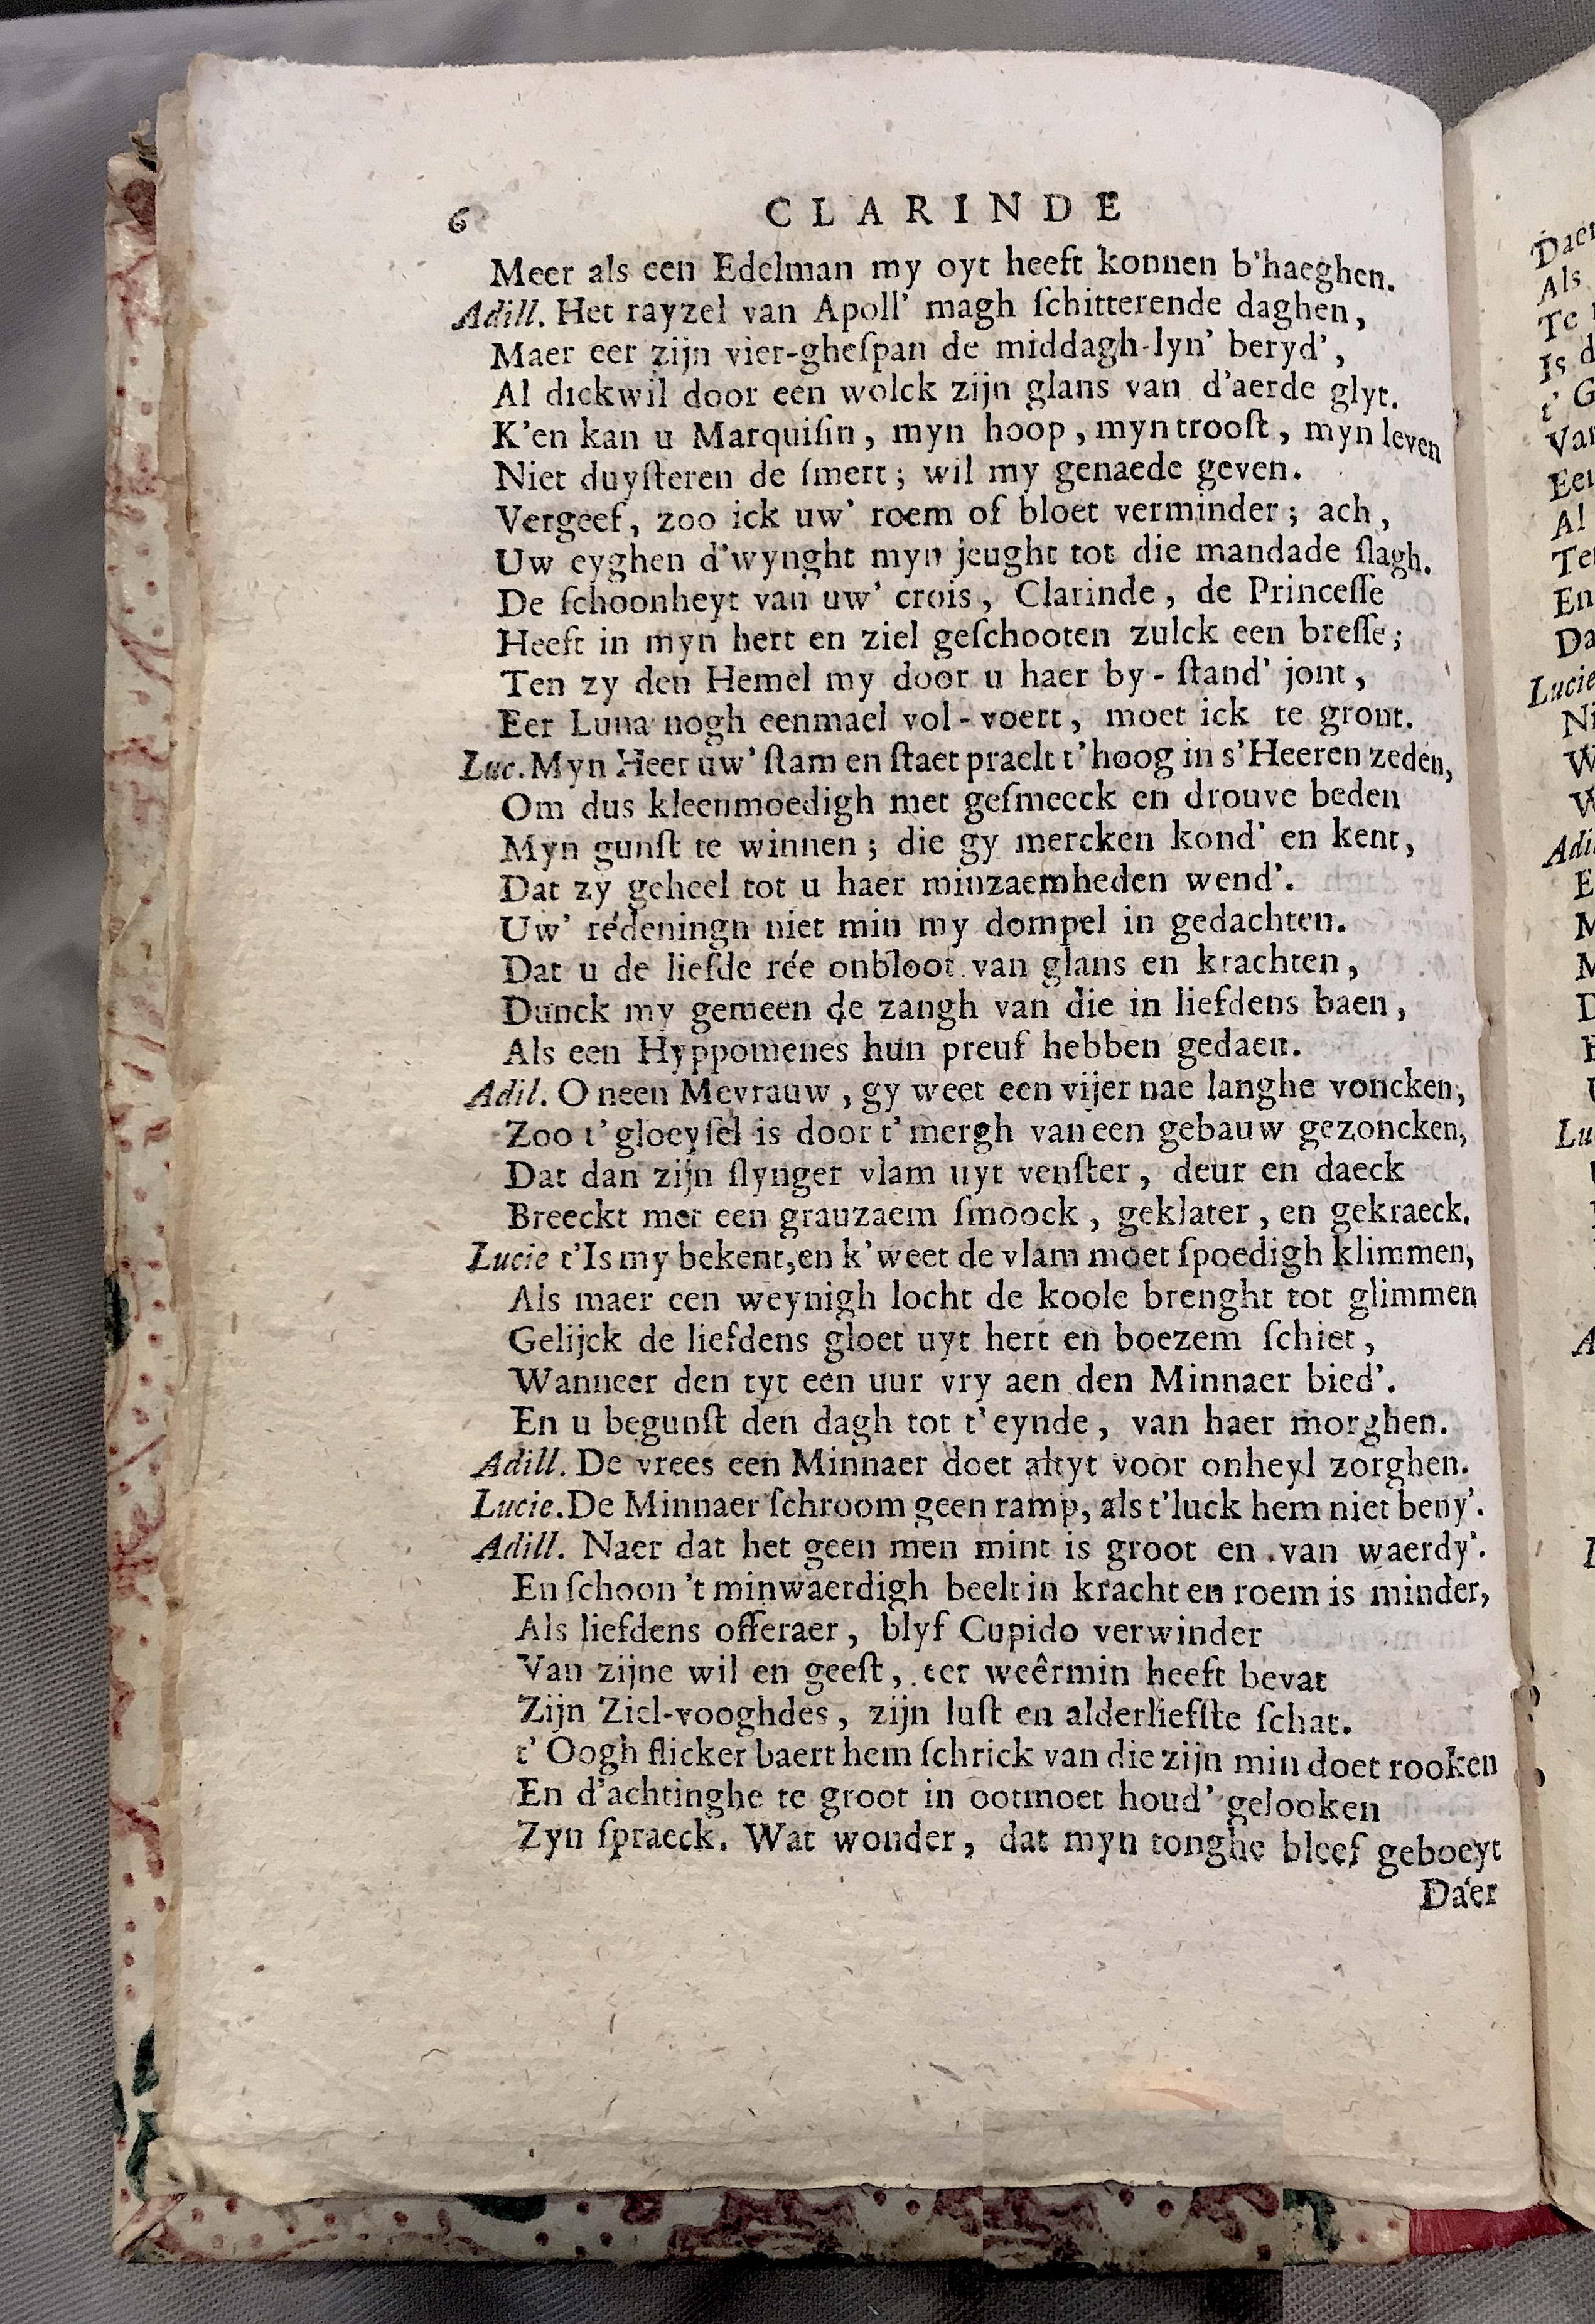 6 CLARINDE
Meer als een Edelman my oyt heeft konnen b'haeghen.
Adill. Het rayzel van Apoll' magh ſchitterende daghen,
Maer eer zijn vier-gheſpan de middagh-lyn' beryd',
Al dickwil door een wolck zijn glans van d'aerde glyt.
K'en kan u Marquiſin, myn hoop, myn trooſt, myn leven
Niet duyſteren de ſmert; wil my genaede geven.
Vergeef, zoo ick uw' roem of bloet verminder; ach,
Uw eyghen d'wynght myn jeught tot die mandade ſlagh.
De ſchoonheyt van uw' crois, Clarinde, de Princeſſe
Heeft in myn hert en ziel geſchooten zulck een breſſe;
Ten zy den Hemel my door u haer by-ſtand' jont,
Eer Luna nogh eenmael vol-voert, moet ick te gront.
Luc. Myn Heer uw' ſtam en ſtaet praelt t'hoog in s'Heeren zeden,
Om dus kleenmoedigh met geſmeeck en drouve beden
Myn gunſt te winnen; die gy mercken kond' en kent,
Dat zy geheel tot u haer minzaemheden wend'.
Uw' rédeningn niet min my dompel in gedachten.
Dat u de liefde rée onbloot van glans en krachten,
Dunck my gemeen de zangh van die in liefdens baen,
Als een Hyppomenes hun preuf hebben gedaen.
Adil. O neen Mevrauw, gy weet een vijer nae langhe voncken,
Zoo t'gloeyſel is door t'mergh van een gebauw gezoncken,
Dat dan zijn ſlynger vlam uyt venſter, deur en daeck
Breeckt met een grauzaem ſmoock, geklater, en gekraeck.
Lucie t'Is my bekent, en k'weet de vlam moet ſpoedigh klimmen,
Als maer een weynigh locht de koole brenght tot glimmen
Gelijck de liefdens gloet uyt hert en boezem ſchiet,
Wanneer den tyt een uur vry aen den Minnaer bied'.
En u begunſt den dagh tot t'eynde, van haer morghen.
Adill. De vrees een Minnaer doet altyt voor onheyl zorghen.
Lucie. De Minnaer ſchroom geen ramp, als t'luck hem niet beny'.
Adill. Naer dat het geen men mint is groot en van waerdy'.
En ſchoon 't minwaerdigh beelt in kracht en roem is minder,
Als liefdens offeraer, blyf Cupido verwinder
Van zijne wil en geeſt, eer weêrmin heeft bevat
Zijn Ziel-vooghdes, zijn luſt en alderliefſte ſchat.
t'Oogh flicker baert hem ſchrick van die zijn min doet rooken
En d'achtinghe te groot in ootmoet houd' gelooken
Zyn ſpraeck. Wat wonder, dat myn tonghe bleef geboeyt
Daer
Daer
Als
Te
Is d
t' G
Van
Al
En
Da
Lucie
Ni
W
W
Adi
E
M
M
D
Lu